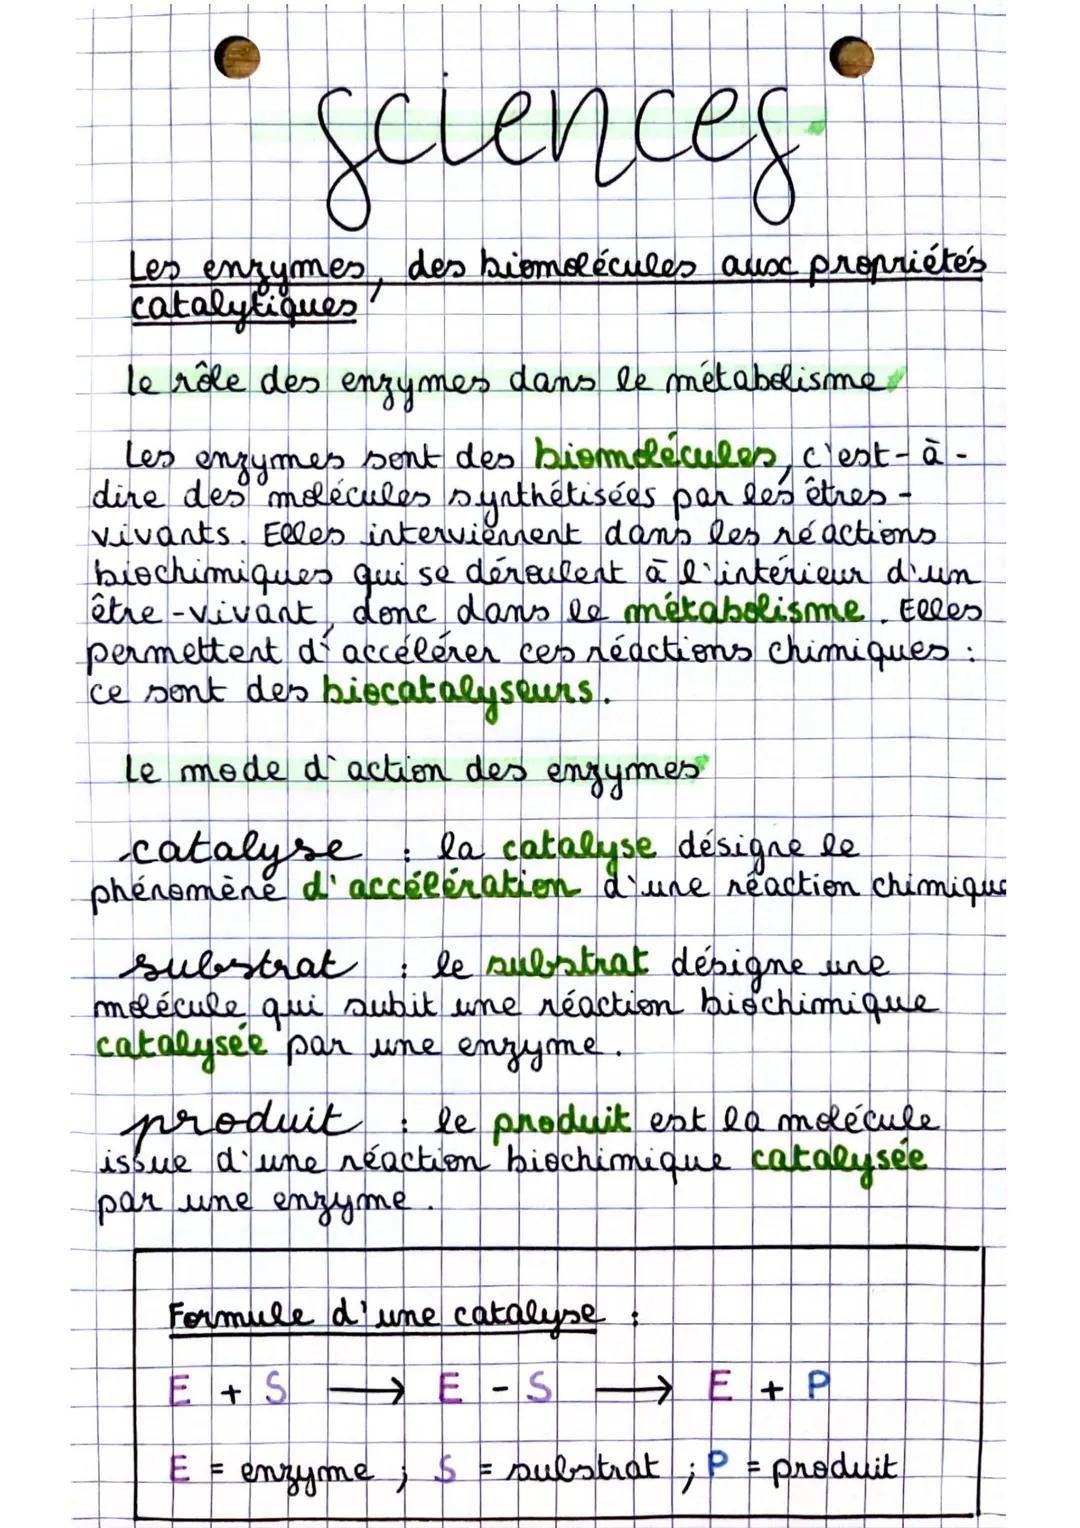 sciences
Les enzymes, des biomolécules aux propriétés
catalytiques
le rôle des enzymes dans le métabolisme
Les enzymes sont des biomolécules, c'est-à-
dire des molécules synthétisées par les êtres-
vivants. Elles interviennent dans les réactions
biochimiques qui se déroulent à l'intérieur d'un
être-vivant, donc dans le métabolisme. Elles
permettent d'accélérer ces réactions chimiques :
ce sont des biocatalyseurs.
Le mode d'action des enzymes
catalyse : la catalyse désigne le
phénomène d'accélération d'une réaction chimique
substrat : le substrat désigne une
molécule qui subit une réaction biochimique
catalysée par une enzyme.
produit : le produit est la molécule
issue d'une réaction biochimique catalysée
par une enzyme.
Formule d'une catalyse :
E + S → E - S → E + P
E = enzyme ; S = substrat ; P = produit